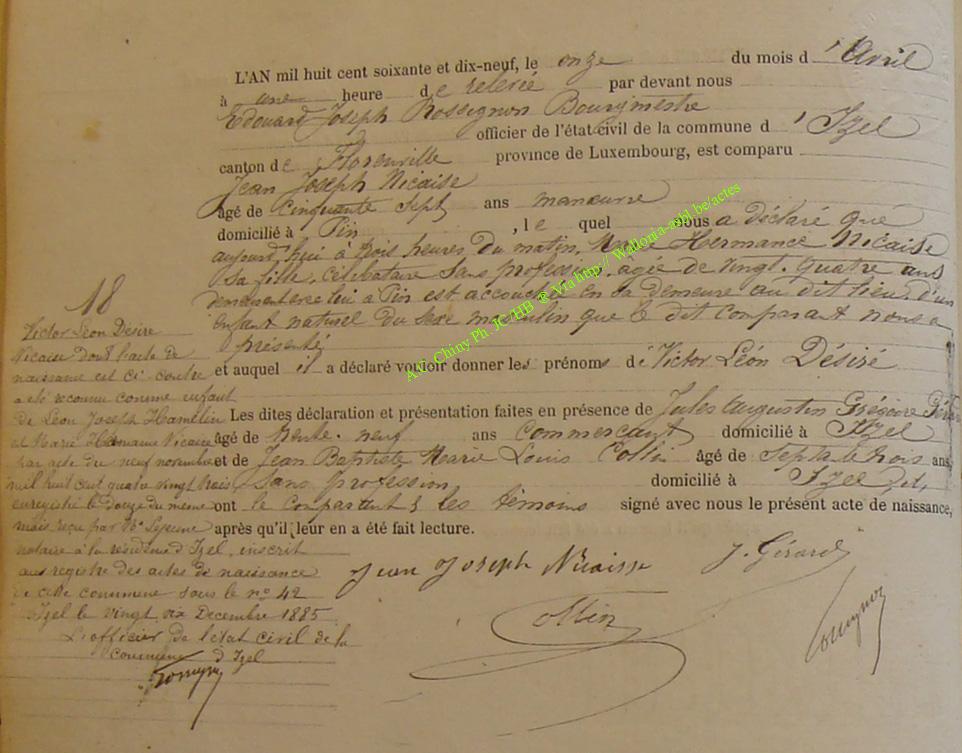 L'AN mil huit cent soixante et dix-neuf, le onze du mois d'Avril
à une heure de relevée par devant nous
Edouard Joseph Rossignon Bourgmestre
officier de l'état-civil de la commune d'Izel
canton de Florenville province de Luxembourg, est comparu
Jean Joseph Nicaise
âgé de Cinquante Sept ans manœuvre
domicilié à Pin, lequel nous a déclaré que
aujourd'hui à trois heures du matin, Marie Hermance Nicaise
sa fille, Célibataire sans profession, agée de vingt-quatre ans
demeurant lui à Pin est accouchée en sa demeure au dit lieu, d'un
enfant naturel du sexe masculin que le dit comparant nous a
présenté
et auquel il a déclaré vouloir donner les prénoms de Victor Léon Désiré
Les dites déclaration et présentation faites en présence de Jules Augustin Grégoire Gérard
âgé de trente-neuf ans Commerçant domicilié à Izel
et de Jean Baptiste Marie Louis Collin âgé de Septante trois ans,
Sans profession domicilié à Izel
ont le Comparant & les témoins signé avec nous le présent acte de naissance,
après qu'il leur en a été fait lecture.
Jean Joseph Nicaisse J. Gérard
Collin
18
Victor Léon Désiré
Nicaise dont l'acte de
naissance est ci-contre
a été reconnu comme enfant
de Léon Joseph Hamelin
et Marie Hermance Nicaise
par acte du neuf novembre
mil huit cent quatre vingt trois
enregistré le douze du même
mois, reçu par Me Lejeune
notaire à la résidence d'Izel, inscrit
aux registre des actes de naissance
de cette commune sous le no 42
Izel le vingt six Decembre 1885
L'officier de l'état civil de la
commune d'Izel
Arb. Chiny Ph. JC/HB @ Via http:// Wallonia-asbl.be/actes